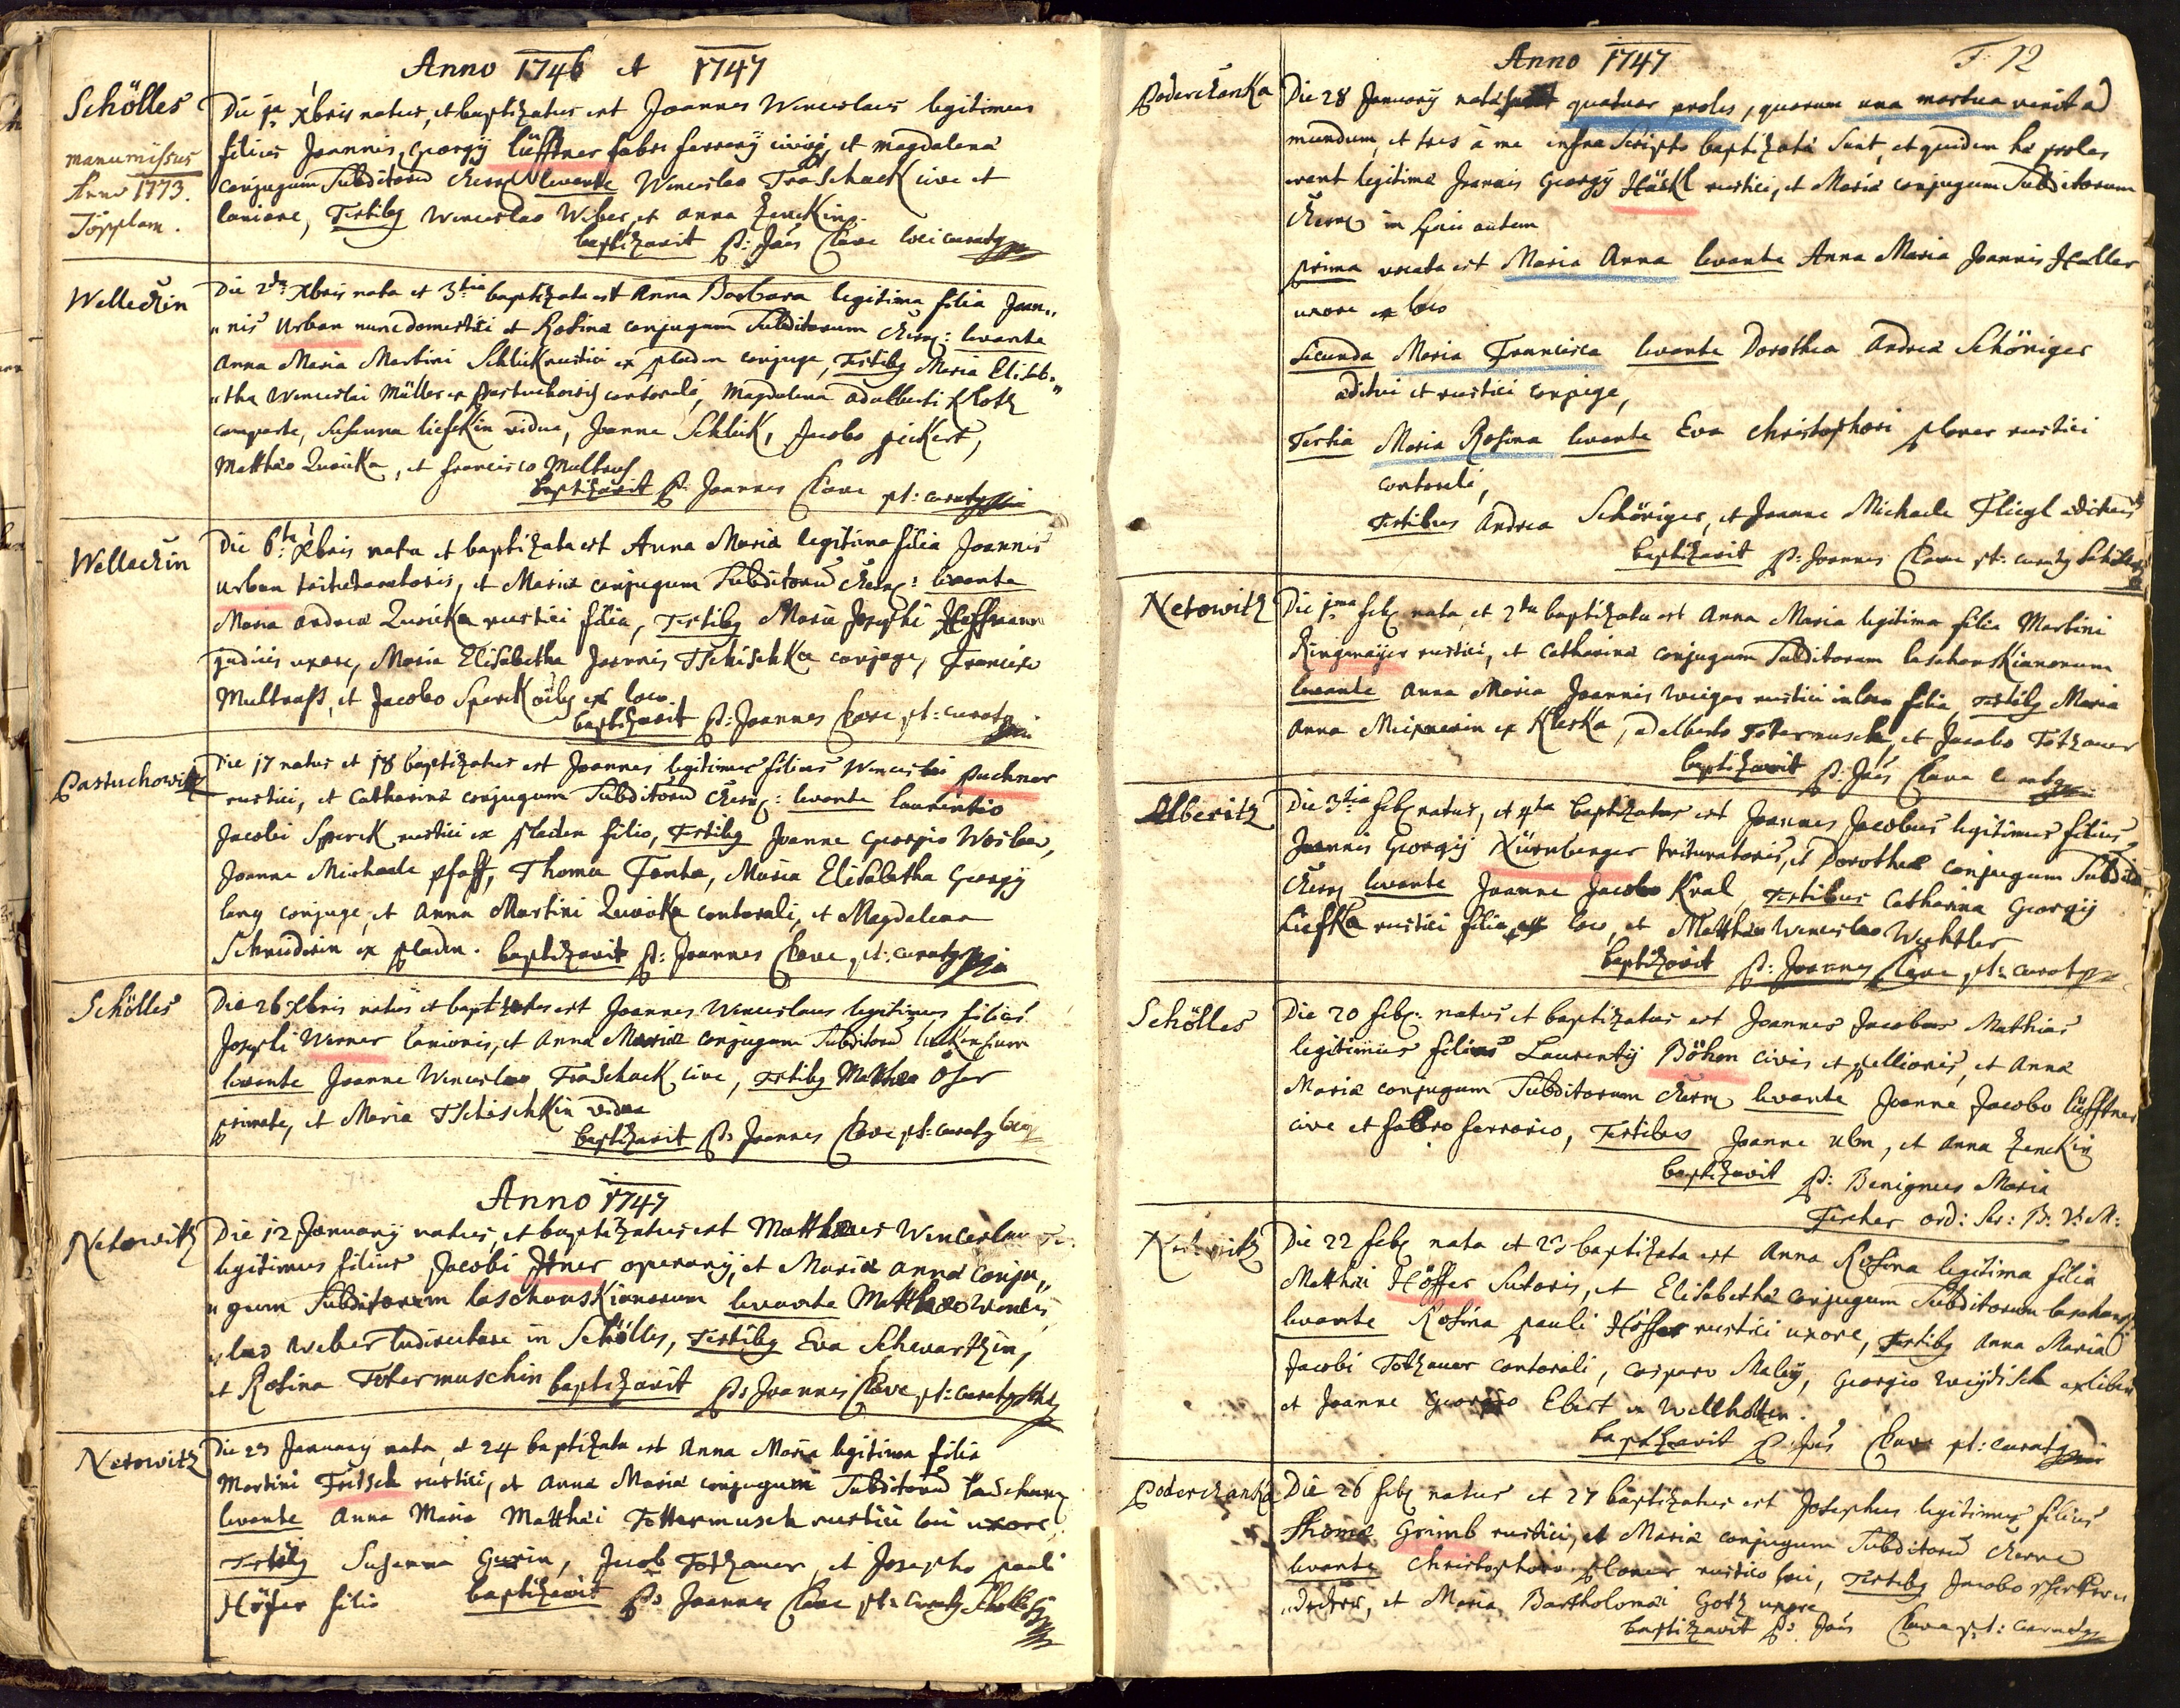 Anno 1746 et 1747
Schölles
manumissus
Anno 1773.
Töpplam.
Die 1ma Xbris natus, et baptizatus est Joannes Wenceslaus legitimus
filius Joannis Georgÿ Lüfftner fabri ferrarÿ civis, et Magdalena
conjugum Subditorū levante Wenceslao Traschack cive et
lanione, Testibq Wenceslao Weber, et Anna Zenckin.
baptizavit P: Joās Clave loci curatq
Welleczin
Die 2da Xbris nata et 3tia baptizata est Anna Barbara legitima filia Joan„
„nis Urban nunc domestici et Rosina conjugum Subditorum Czern: levante
Anna Maria Martini Schlick rustici ex pladen conjuge, Testibq Maria Elisab„
„tha Wenceslai Müller ex Pastuchowitz contorali, Magdalena Adalberti Klotz
comparte, Susanna liefskin vidua, Joanne Schlick, Jacobo pickert,
Matthæo Zuricka, et Francisco Multrus
baptizavit P: Joannes Clave pt: curatq
Welleczin
Die 6ta Xbris nata et baptizata est Anna Maria legitima filia Joannis
Urban, et Mariæ conjugum Subditorū Czern: levante
Maria Andreæ Zuricka rustici filia, Testibq Maria Josephi Hoffmann
judicis uxore, Maria Elisabetha Joannis Tschischka conjuge, Francisco
Multrass, et Jacobo Sperck ex loco.
baptizavit P: Joannes Clave pt: curatq
Pastuchowitz
Die 17 natus et 18 baptizatus est Joannes legitimus filius Wenceslai Puchner
rustici, et Catharina conjugum Subditorū Czern: levante laurentio
Jacobi Sperck rustici ex pladen filio, Testibq Joanne Georgio Weslen,
Joanne Michaele Pfaff, Thoma Fenta, Maria Elisabetha Georgÿ
lang conjuge, et Anna Martini Zuricka contorali, et Magdalena
Schneiderin ex pladen. baptizavit P: Joannes Clave, pt: curatq
Schölles
Die 26 Xbris natus et baptizatus est Joannes Wenceslaus legitimus filius
Josephi Werner lanionis, et Anna Mariæ conjugum Subditorū
levante Joanne Wenceslao Traschack cive, Testibq Matthæo Oser
primate, et Maria Tschischkin vidua
baptizavit P: Joannes Clave pt: curatq loci
Anno 1747
Netowitz
Die 12 Januarÿ natus, et baptizatus est Matthæus Wenceslaus
legitimus filius Jacobi Itner operarÿ, et Mariæ Anna conju„
„gum Subditorum laschanskianorum levante Matthæo Wences„
„lao Weber ludirectore in Schölles, Testibq Eva Schwartzin,
et Rosina Totermuschin baptizavit P: Joannes Clave pt: curatq
Netowitz
Die 23 Januarÿ nata, et 24 baptizata est Anna Maria legitima filia
Martini Fritsch rustici, et Anna Mariæ conjugum Subditorū laschan
levante Anna Maria Matthæi Tottermusch rustici loci uxore,
Testibq Susanna Gurin, Jacob Totzauer, et Josepho pauli
Höffer filio baptizavit P: Joannes Clave pt: curatq
Anno 1747
F. 12
Poderczanka
Die 28 Januarÿ natæ sunt quatuor proles, quarum una mortua venit ad
mundum, et tres à me infra scripto baptizata sunt, et quidem hæ proles
erant legitimæ Joannis Georgÿ Häckl rustici, et Mariæ conjugum Subditorum
Czern in specie autem
prima vocata est Maria Anna levante Anna Maria Joannis Haller
uxore ex loco
Secunda Maria Francisca levante Dorothea Andreæ Schöniger
æditui et rustici conjuge,
Tertia Maria Rosina levante Eva Christophori ploner rustici
contorali,
Testibus Andrea Schöniger, et Joanne Michaele Fliegl
baptizavit P: Joannes Clave pt: curatq Schölles
Netowitz
Die 1ma feb nata, et 2da baptizata est Anna Maria legitima filia Martini
Ringmaÿer rustici, et Catharina conjugum Subditorum laschanskianorum
levante Anna Maria Joannis weiger rustici in loco filia, Testibq Maria
Anna Meixnerin ex Kleska, Adalberto Totermusch, et Jacobo Totzauer
baptizavit P: Joās Clave
Alberitz
Die 3tia feb natus, et 4ta baptizatus est Joannes Jacobus legitimus filius
Joannis Georgÿ Nürnberger trituratoris, et Dorotheæ conjugum Subdit
Czern levante Joanne Jacobo Kral, Testibus Catharina Georgÿ
Liefka rustici filia ex loco, et Matthæo Wenceslao Wechtler
baptizavit P: Joannes Clave pt: curatq
Schölles
Die 20 feb: natus et baptizatus est Joannes Jacobus Mathias
legitimus filius Laurentÿ Böhm civis et pellionis, et Anna
Mariæ conjugum Subditorum Czern levante Joanne Jacobo lüfftner
cive et fabro ferrario, Testibus Joanne Ulm, et Anna Zenckin
baptizavit P: Benignus Maria
Fischer ord: Ser: B: V: M:
Netowitz
Die 22 feb nata et 23 baptizata est Anna Rosina legitima filia
Matthæi Höffer Sutoris, et Elisabetha conjugum Subditorum laschansk
levante Rosina pauli Höffer rustici uxore, Testibq Anna Maria
Jacobi Totzauer contorali, Casparo Malÿ, Georgio weÿdisch
et Joanne Georgio Ebert ex Wellhotten.
baptizavit P: Joās Clave pt: curatq
Poderczanka
Die 26 feb natus et 27 baptizatus est Josephus legitimus filius
Thomæ Grimb rustici, et Mariæ conjugum Subditorū Czerne
levante Christophoro ploner rustico loci, Testibq Jacobo
et Maria Bartholomæi Gotz uxore
baptizavit P: Joās Clave pt: curatq